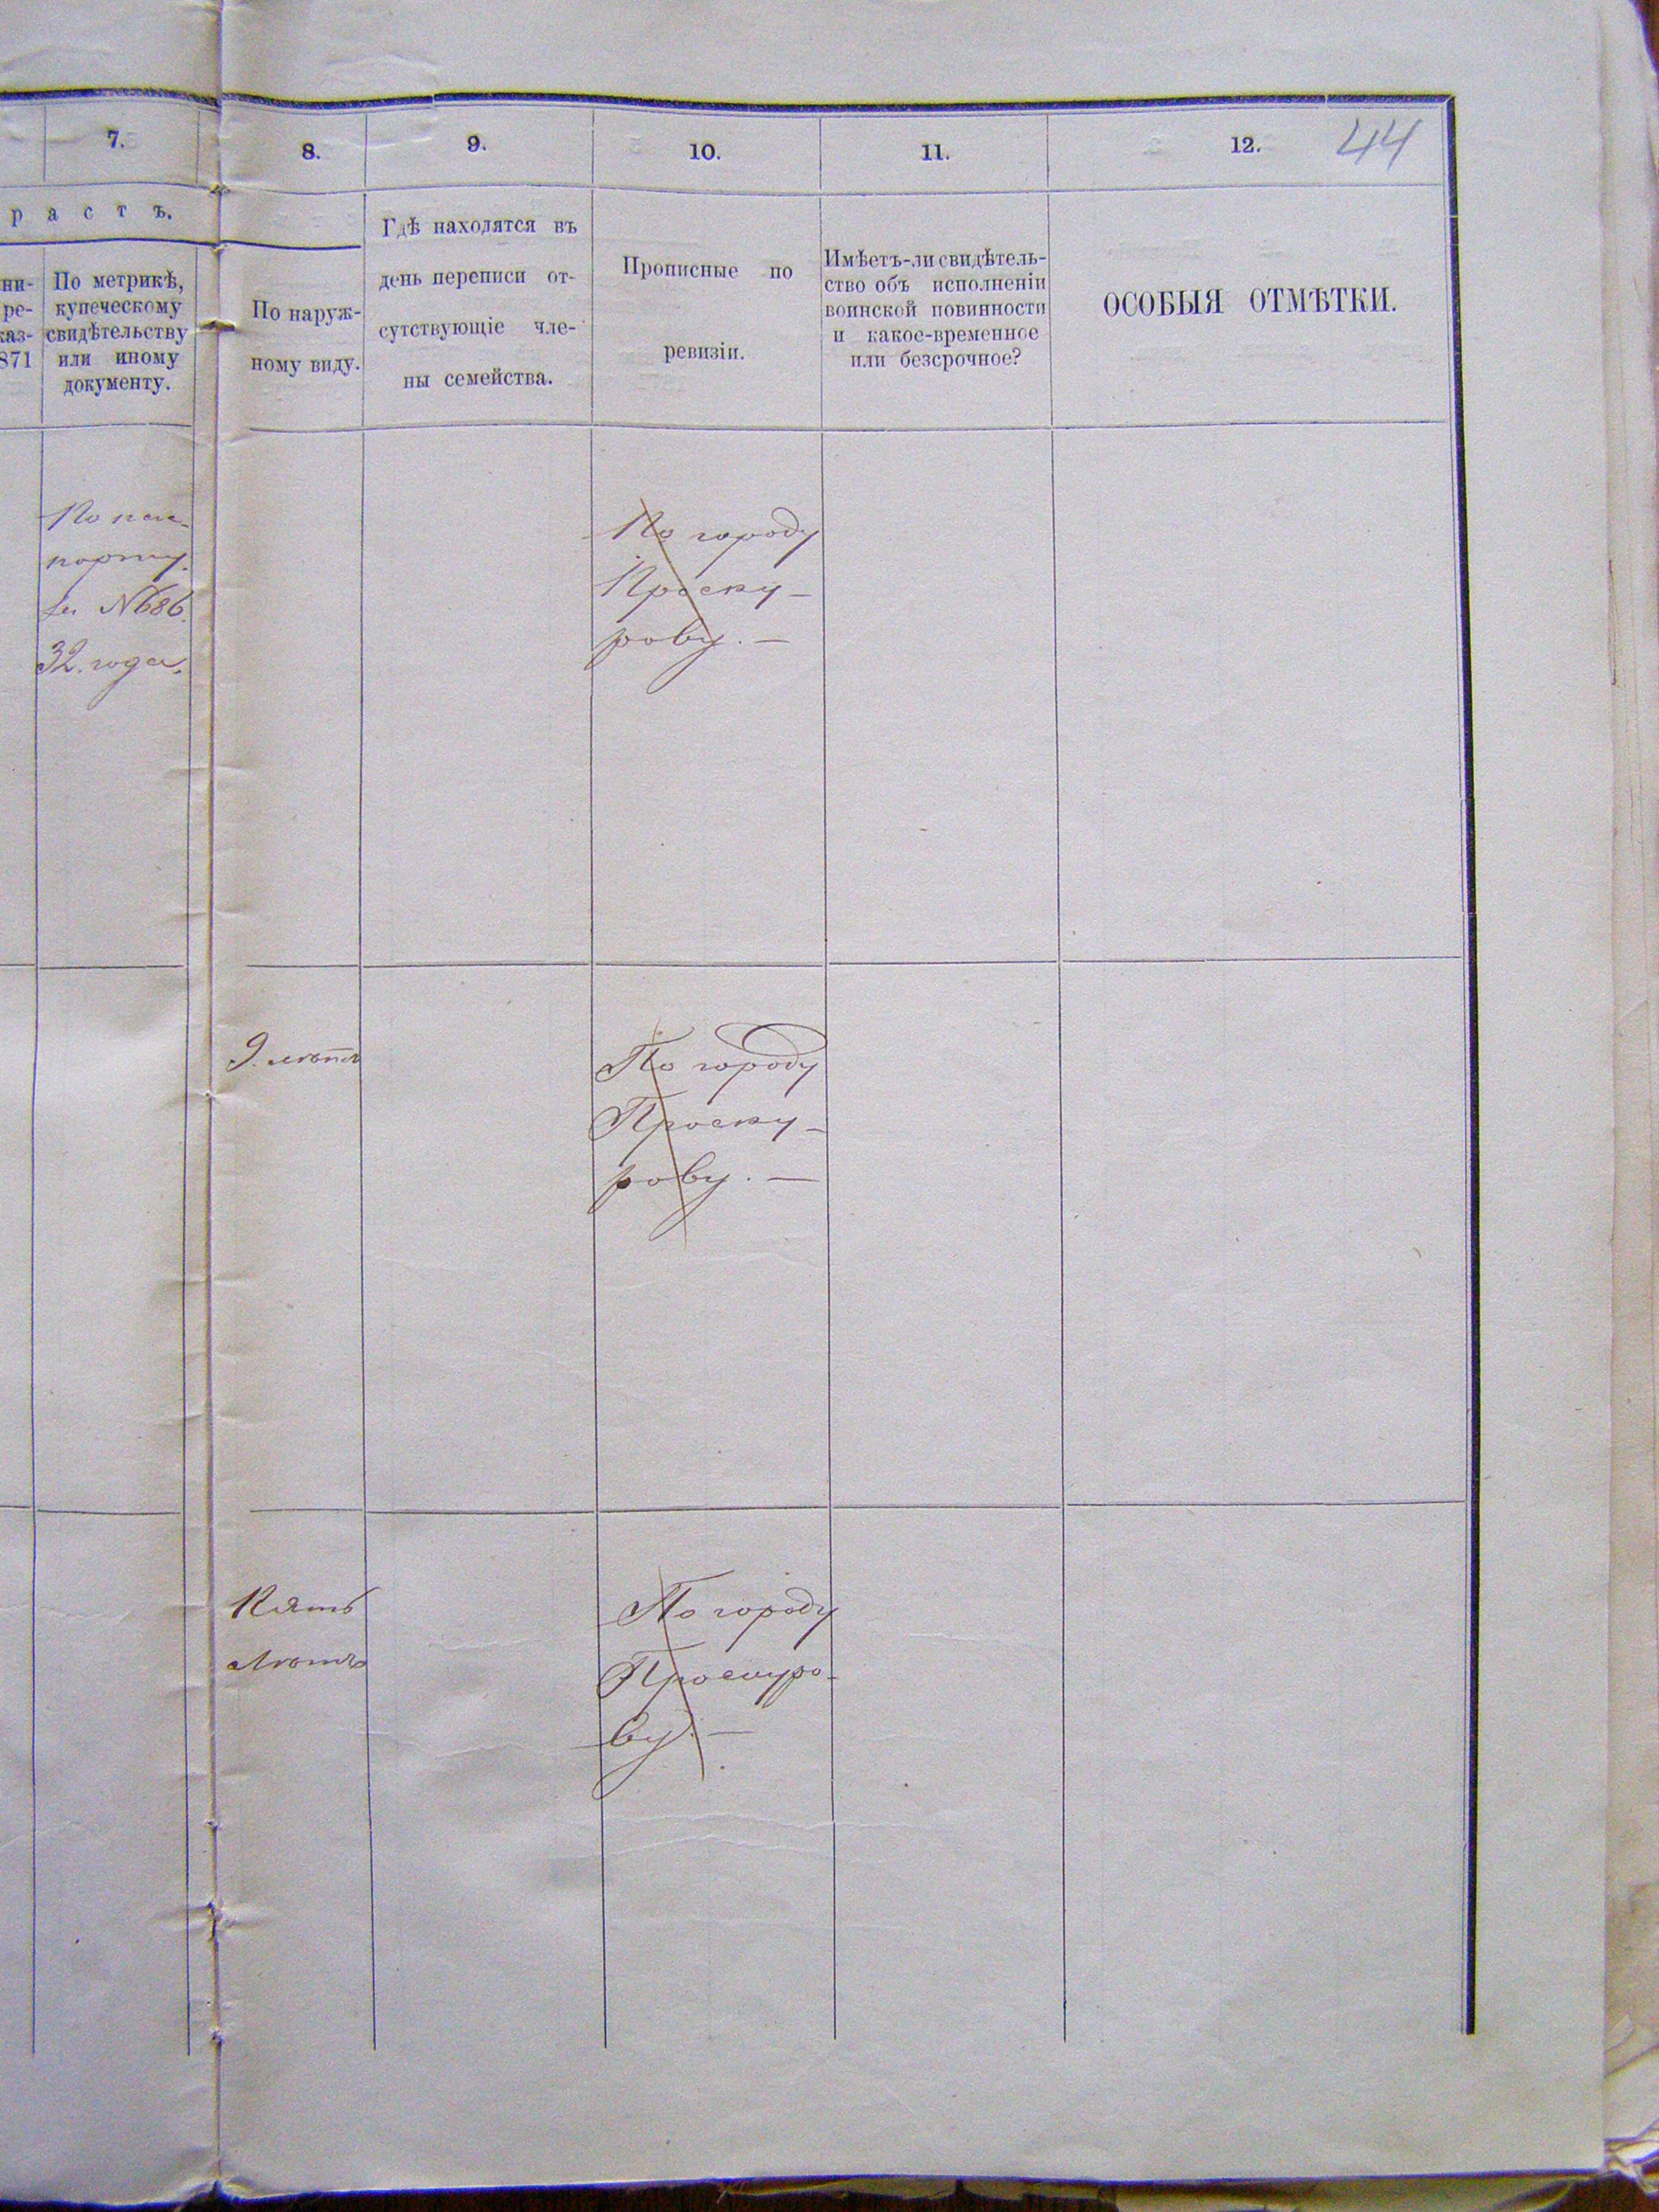 7.
8.
9.
10.
11.
12.
44
р а с т ъ.
ни-
ре-
каз-
871
По метрикѣ,
купеческому
свидѣтельству
или иному
документу.
По наруж-
ному виду.
Гдѣ находятся въ
день переписи от-
сутствующіе чле-
ны семейства.
Прописные по
ревизіи.
Имѣетъ-ли свидѣтель-
ство объ исполненіи
воинской повинности
и какое-временное
или безсрочное?
ОСОБЫЯ ОТМѢТКИ.
По пас-
порту.
за № 686
32. года.
По городу
Проску-
рову. —
9. лѣтъ
По городу
Проску-
рову. —
Пять
лѣтъ
По городу
Проскуро-
ву. —